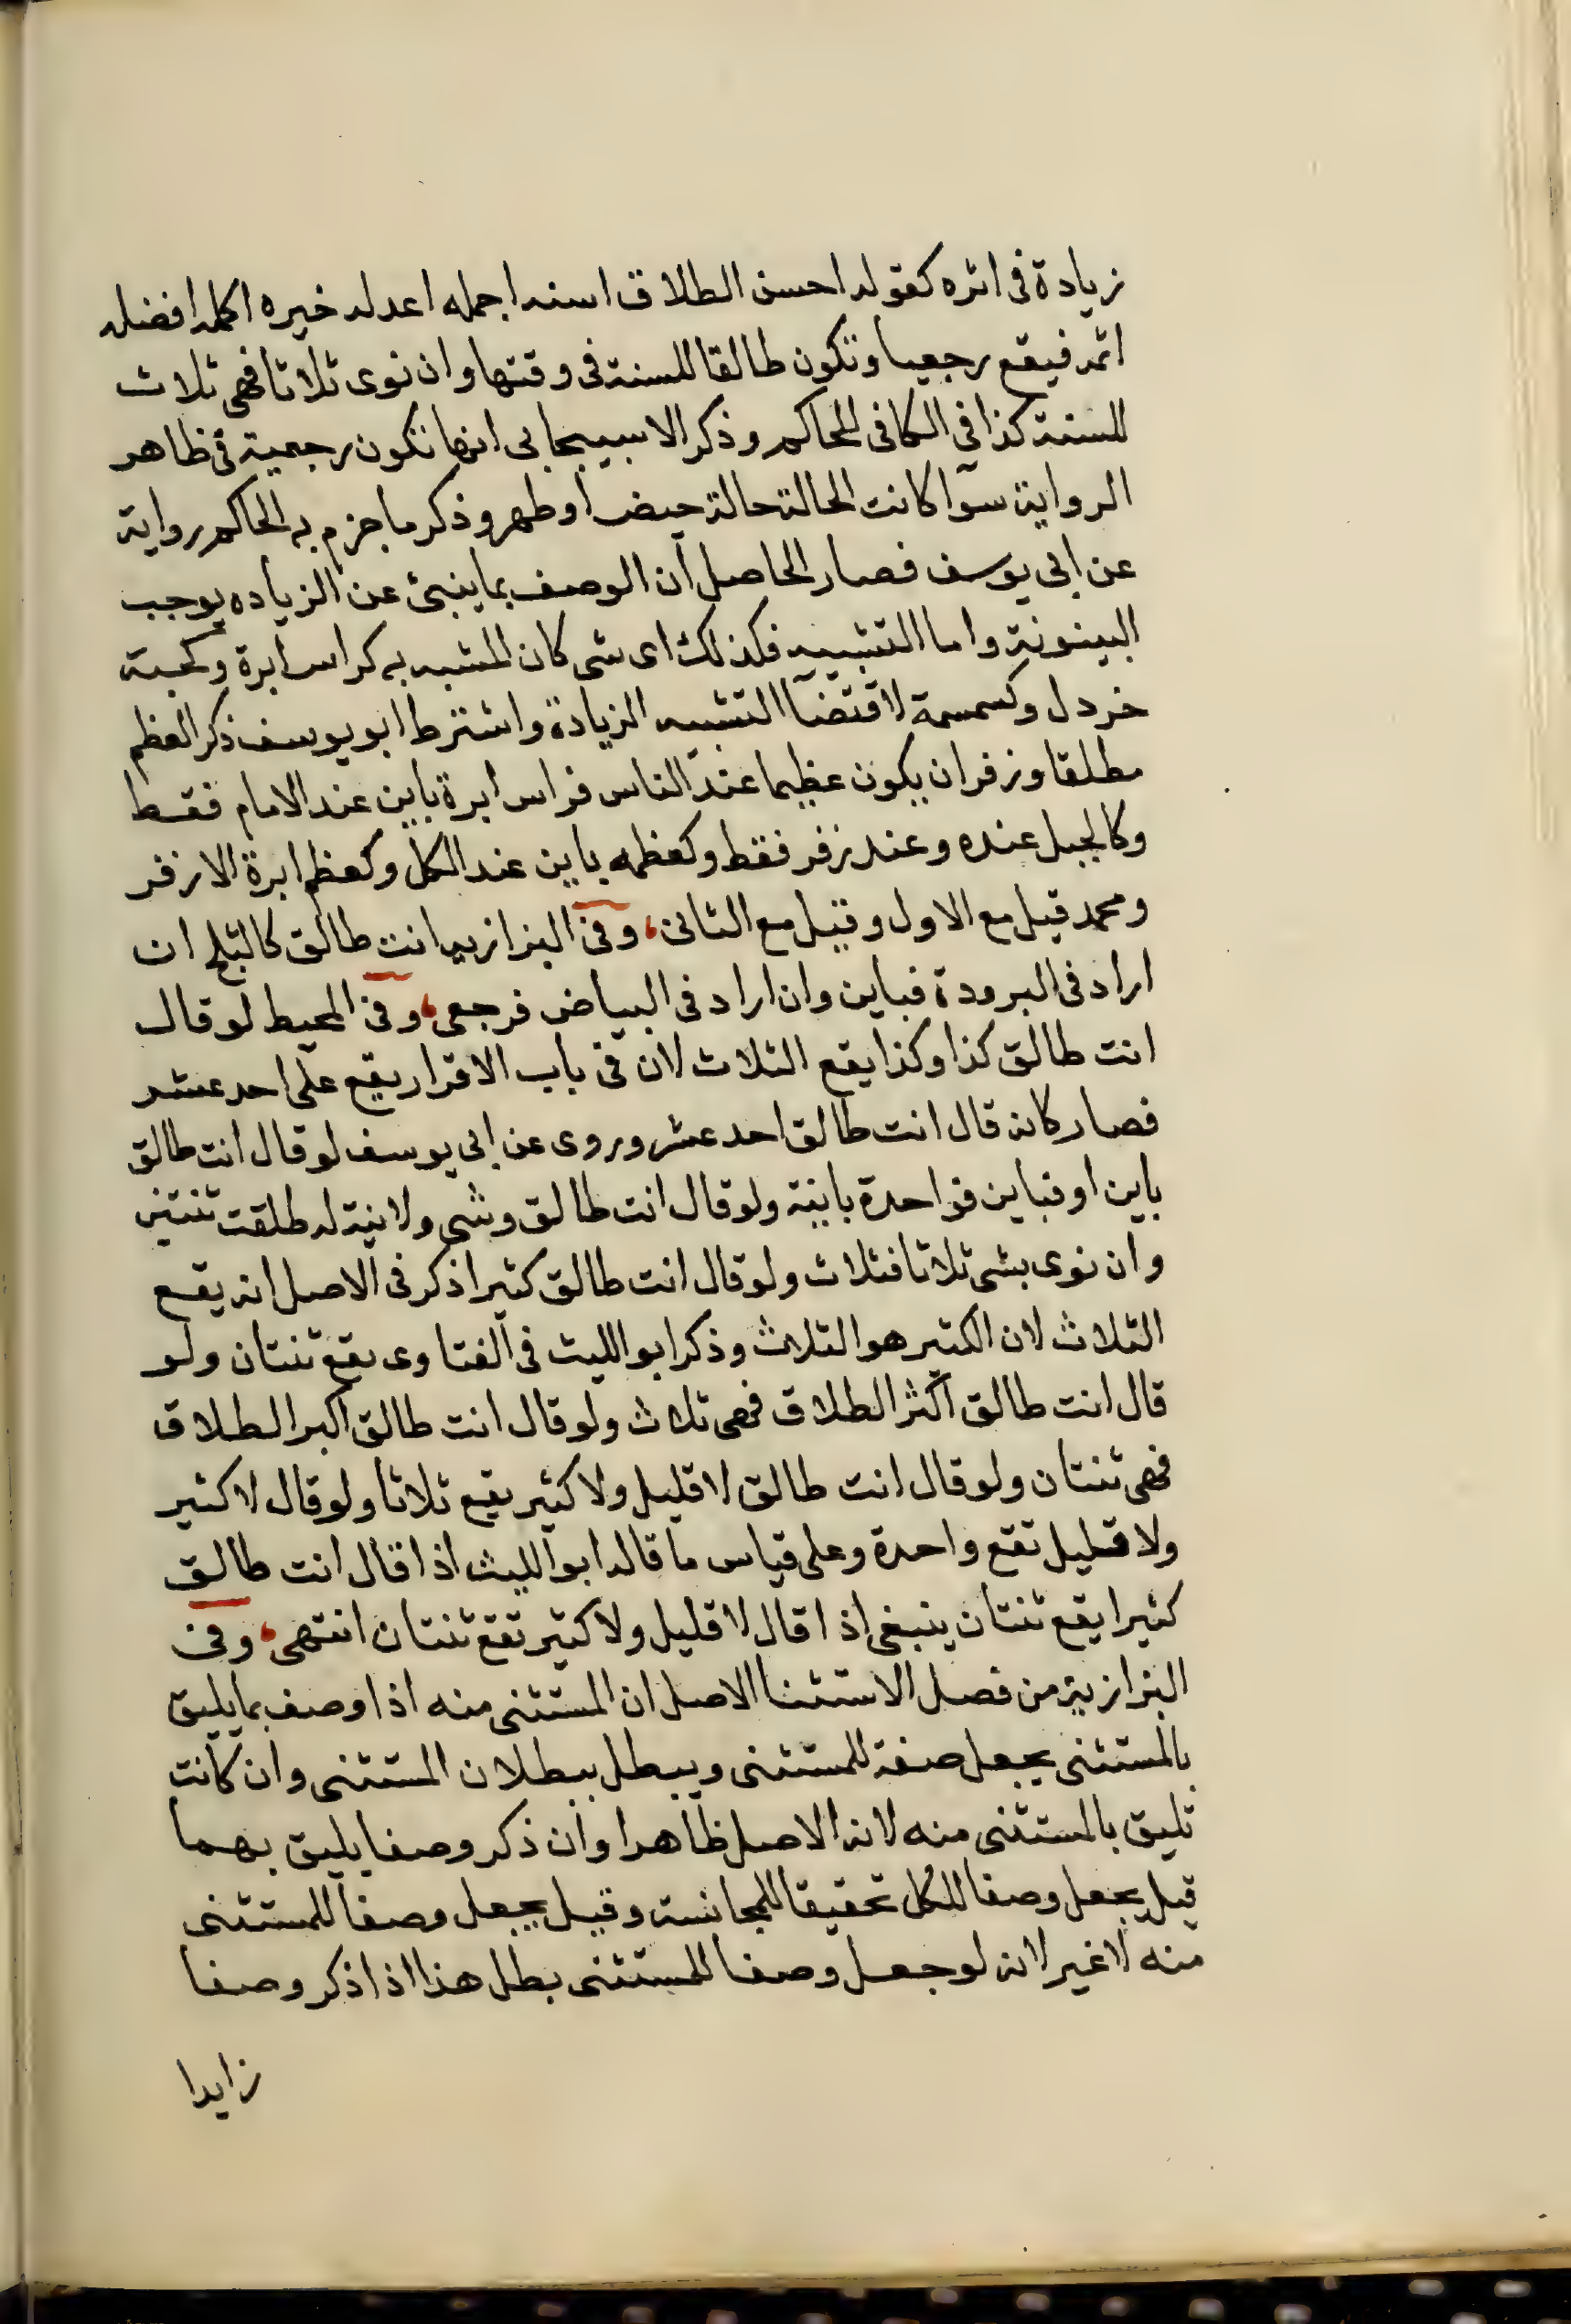 زيادة فى اثره كقوله احسن الطلاق اسنه اجمله اعدله خيره اكمله افضله
اتمه فيقع رجعيا وتكون طالقا للسنة فى وقتها وان نوى ثلاثا فهى ثلاث
للسنة كذا فى الكافى للحاكم وذكر الاسبيجابى انها تكون رجعية فى ظاهر
الرواية سوآ كانت الحالة حالة حيض او طهر وذكر ما جزم به الحاكم رواية
عن ابى يوسف فصار الحاصل ان الوصف بما ينبئ عن الزياده يوجب
البينونة واما التشبيه فكذلك اى شى كان المشبه به كراس ابرة وكحبة
خردل وكسمسمة لاقتضآ التشبيه الزيادة واشترط ابو يوسف ذكر العظم
مطلقا وزفر ان يكون عظيما عند الناس فراس ابرة باين عند الامام فقط
وكالجبل عنده وعند زفر فقط وكعظمه باين عند الكل وكعظم ابرة الا زفر
ومحمد قيل مع الاول وقيل مع الثانى، وفى البزازيه انت طالق كالثلج ان
اراد فى البرودة فباين وان اراد فى البياض فرجعى، وفى المحيط لو قال
انت طالق كذا وكذا يقع الثلاث لان فى باب الاقرار يقع على احد عشر
فصار كانه قال انت طالق احد عشر وروى عن ابى يوسف لو قال انت طالق
باين او فباين فواحدة باينة ولو قال انت طالق وشى ولا نية له طلقت ثنتين
وان نوى بشى ثلاثا فثلاث ولو قال انت طالق كثيرا ذكر فى الاصل انه يقع
الثلاث لان الكثير هو الثلاث وذكر ابو الليث فى الفتاوى يقع ثنتان ولو
قال انت طالق اكثر الطلاق فهى ثلاث ولو قال انت طالق اكبر الطلاق
فهى ثنتان ولو قال انت طالق لا قليل ولا كثير يقع ثلاثا ولو قال لا كثير
ولا قليل تقع واحدة وعلى قياس ما قاله ابو الليث اذا قال انت طالق
كثيرا يقع ثنتان ينبغى اذا قال لا قليل ولا كثير تقع ثنتان انتهى، وفى
البزازية من فصل الاستثنا الاصل ان المستثنى منه اذا وصف بما يليق
بالمستثنى يجعل صفة للمستثنى ويبطل ببطلان المستثنى وان كانت
تليق بالمستثنى منه لانه الاصل ظاهرا وان ذكر وصفا يليق بهما
قيل يجعل وصفا للكل تحقيقا للمجانسة وقيل يجعل وصفا للمستثنى
منه لا غير لانه لو جعل وصفا للمستثنى بطل هذا اذا ذكر وصفا
زايدا